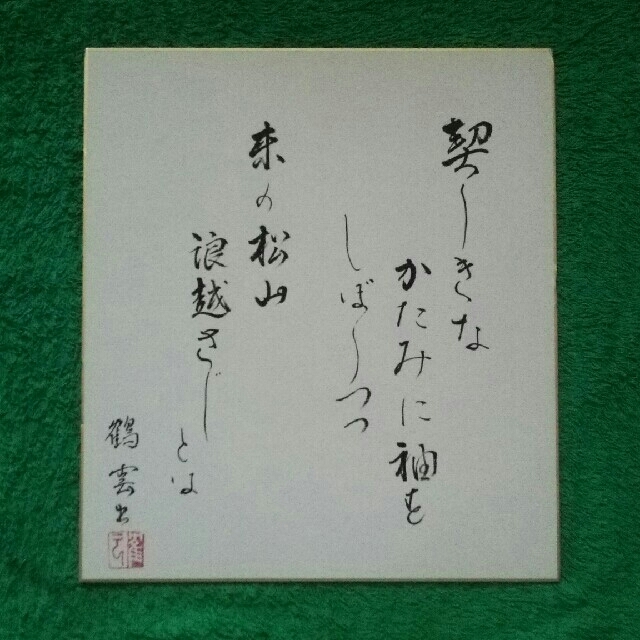 契りきな
かたみに袖を
しぼりつつ
末の松山
浪越さじとは
鶴雲書